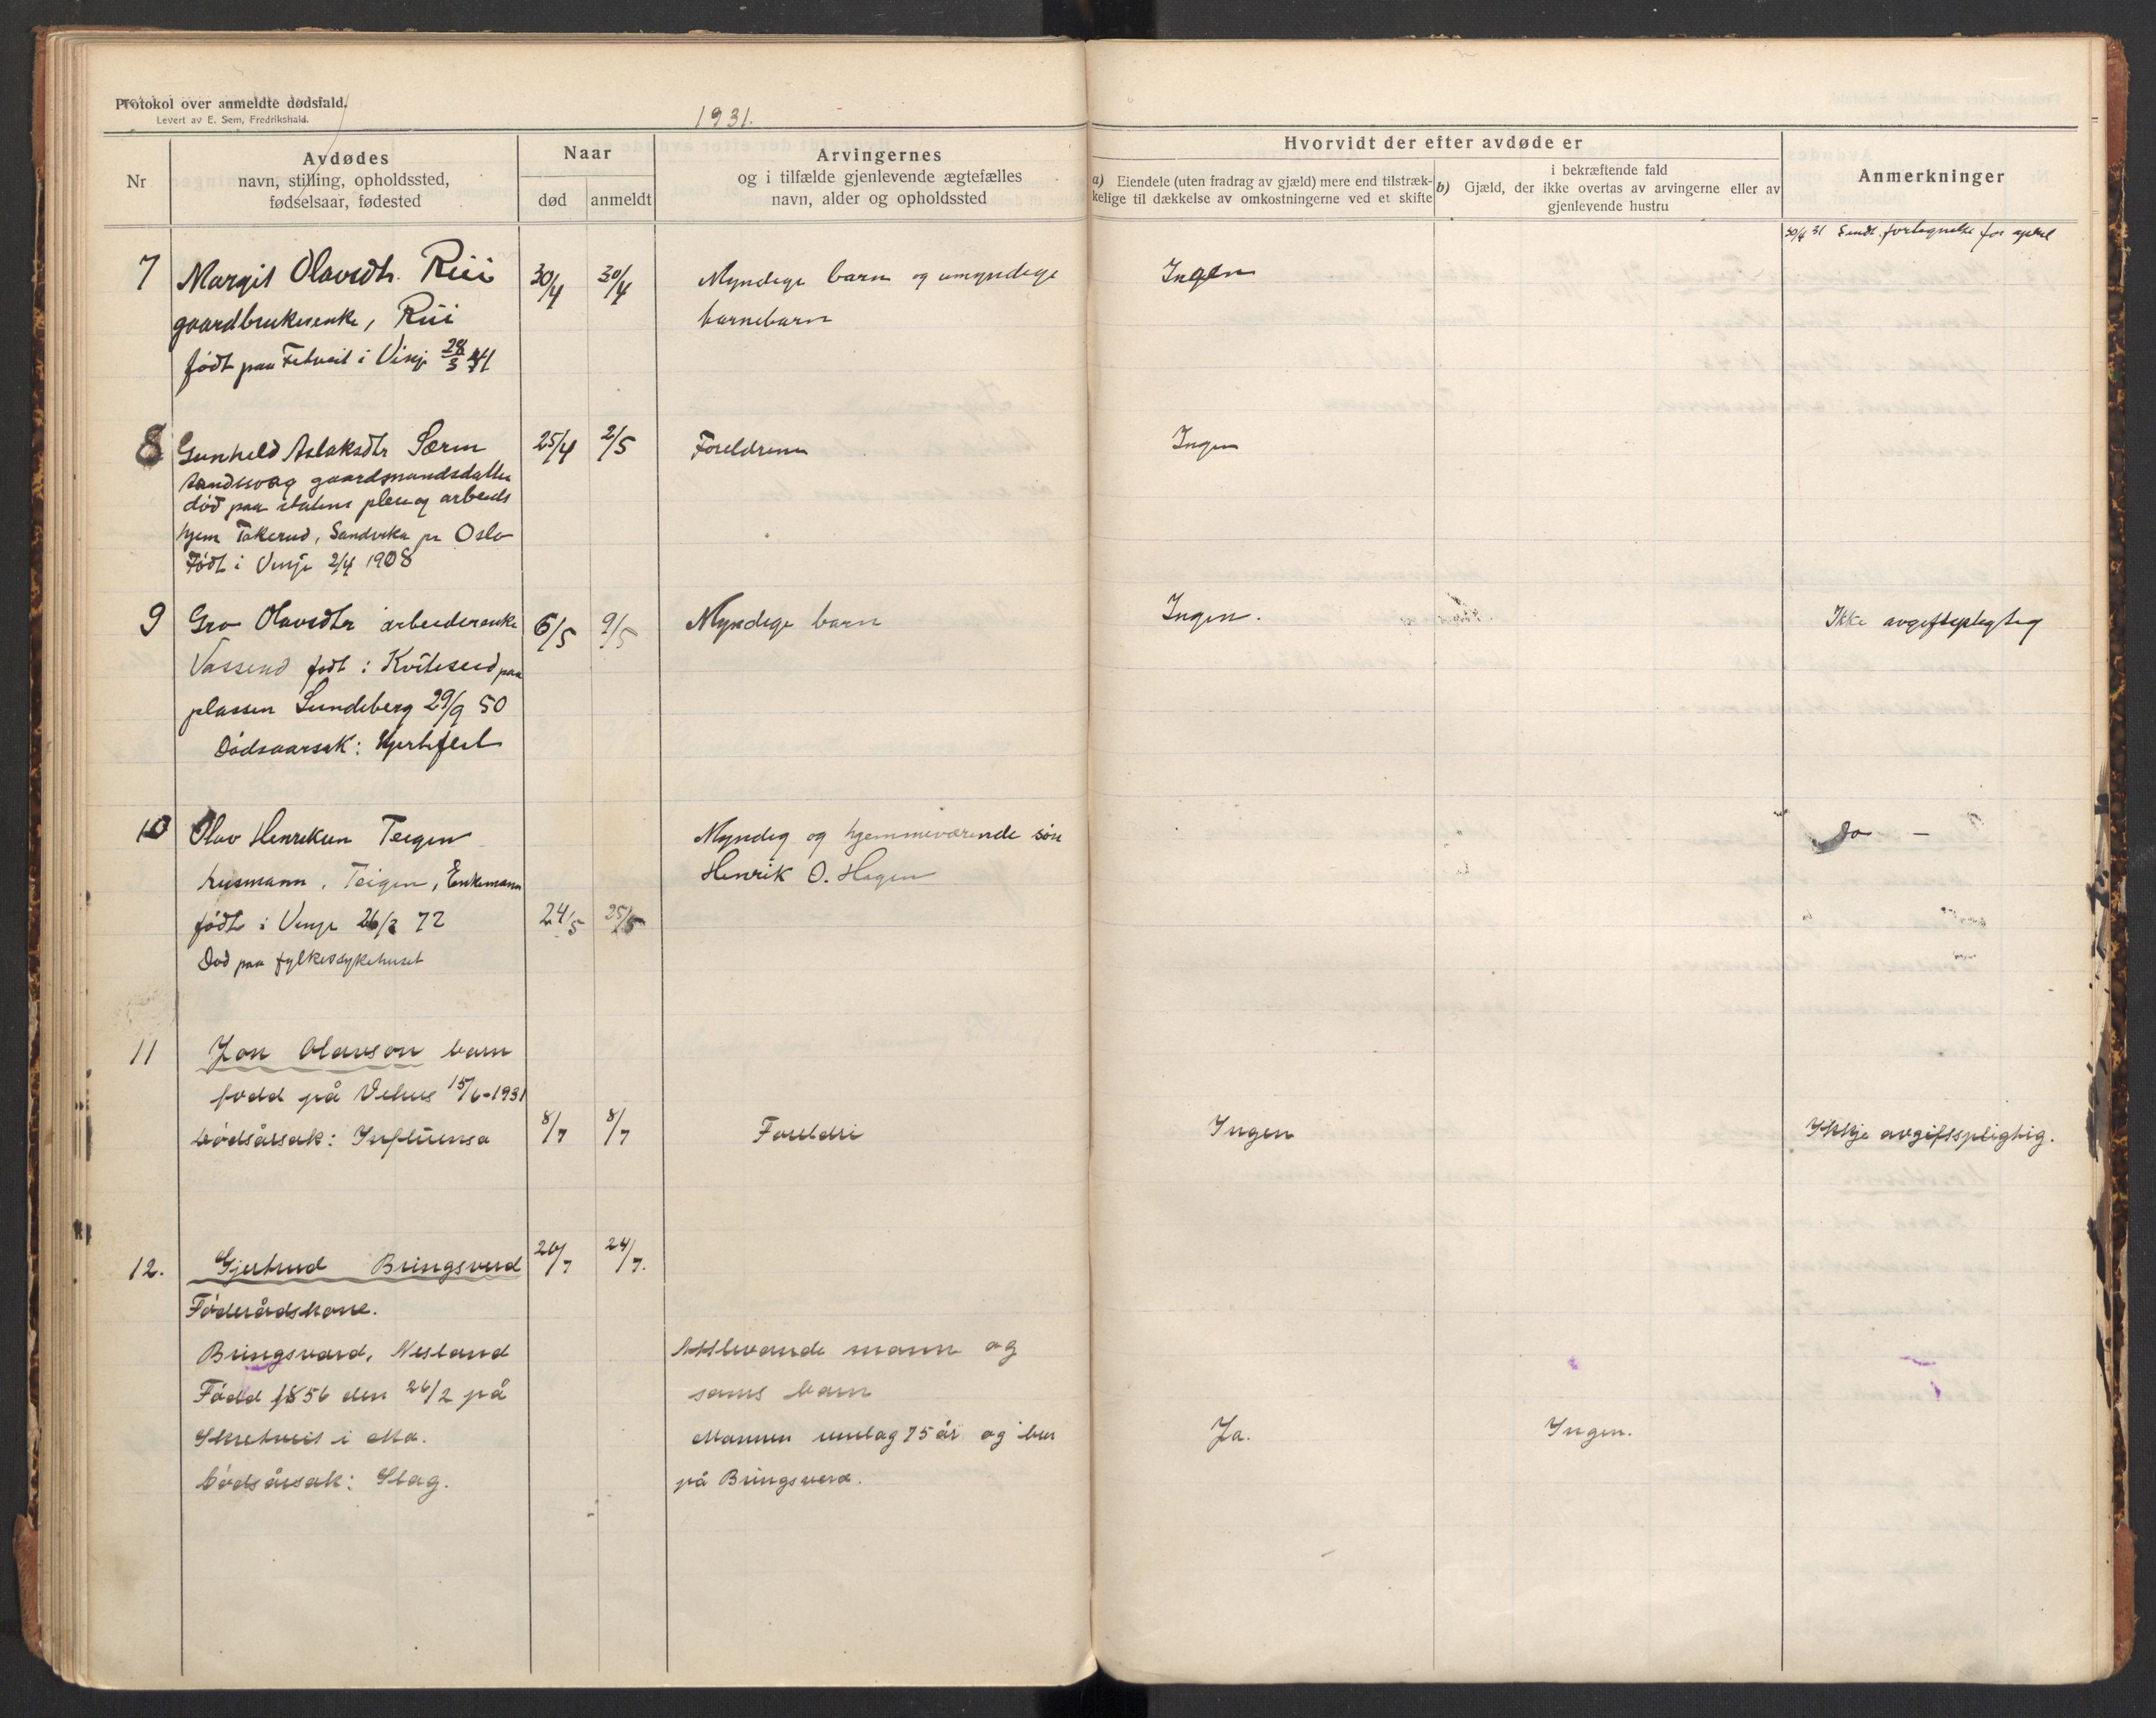 Protokol over anmeldte dødsfald.
Levert av E. Sem, Fredrikshald.
1931.
Nr
Avdødes
navn, stilling, opholdssted,
fødselsaar, fødested
Naar
død
anmeldt
Arvingernes
og i tilfælde gjenlevende ægtefælles
navn, alder og opholdssted
Hvorvidt der efter avdøde er
a) Eiendele (uten fradrag av gjæld) mere end tilstræk-
kelige til dækkelse av omkostningerne ved et skifte
b) i bekræftende fald
Gjæld, der ikke overtas av arvingerne eller av
gjenlevende hustru
Anmerkninger
30/4 31 Sendt fortegnelse for april
7 Margit Olavsdtr. Rui 30/4 30/4 Myndige barn og umyndige Ingen
gaardbrukerenke, Rui barnebarn
født paa i Vinje 28/3
8 Gunhild Aslaksdtr Særen 25/4 2/5 Foreldrene Ingen
gaardsmandsdatter
død paa statens pleie og arbeids
hjem Tokerud, Sandvika pr Oslo
Født i Vinje 2/4 1908
9 Gro Olavsdtr arbeiderenke 6/5 9/5 Myndige barn Ingen. Ikke avgiftspligtig
Vassend født i Kviteseid paa
plassen Sundeberg 29/9 50
Dødsaarsak: Hjertefeil
10 Olav Henriksen Teigen Myndig og hjemmeværende søn Do —
husmann, Teigen, Enkemann Henrik O. Hagen
født i Vinje 72 24/5 25/5
Død paa fylkessykehuset
11 Jon Olavson barn
fødd på Vehus 15/6-1931
Dødsårsak: Influensa 8/7 8/7 Foreldri Ingen Ikkje avgiftspligtig.
12. Gjertrud Bringsverd 20/7 24/7.
Føderådskone.
Bringsverd, Nesland Attlevande mann og
Fødd 1856 den 26/2 på sams barn
i Mo. Mannen umlag 75 år og bur Ja. Ingen.
Dødsårsak: Slag. på Bringsverd.